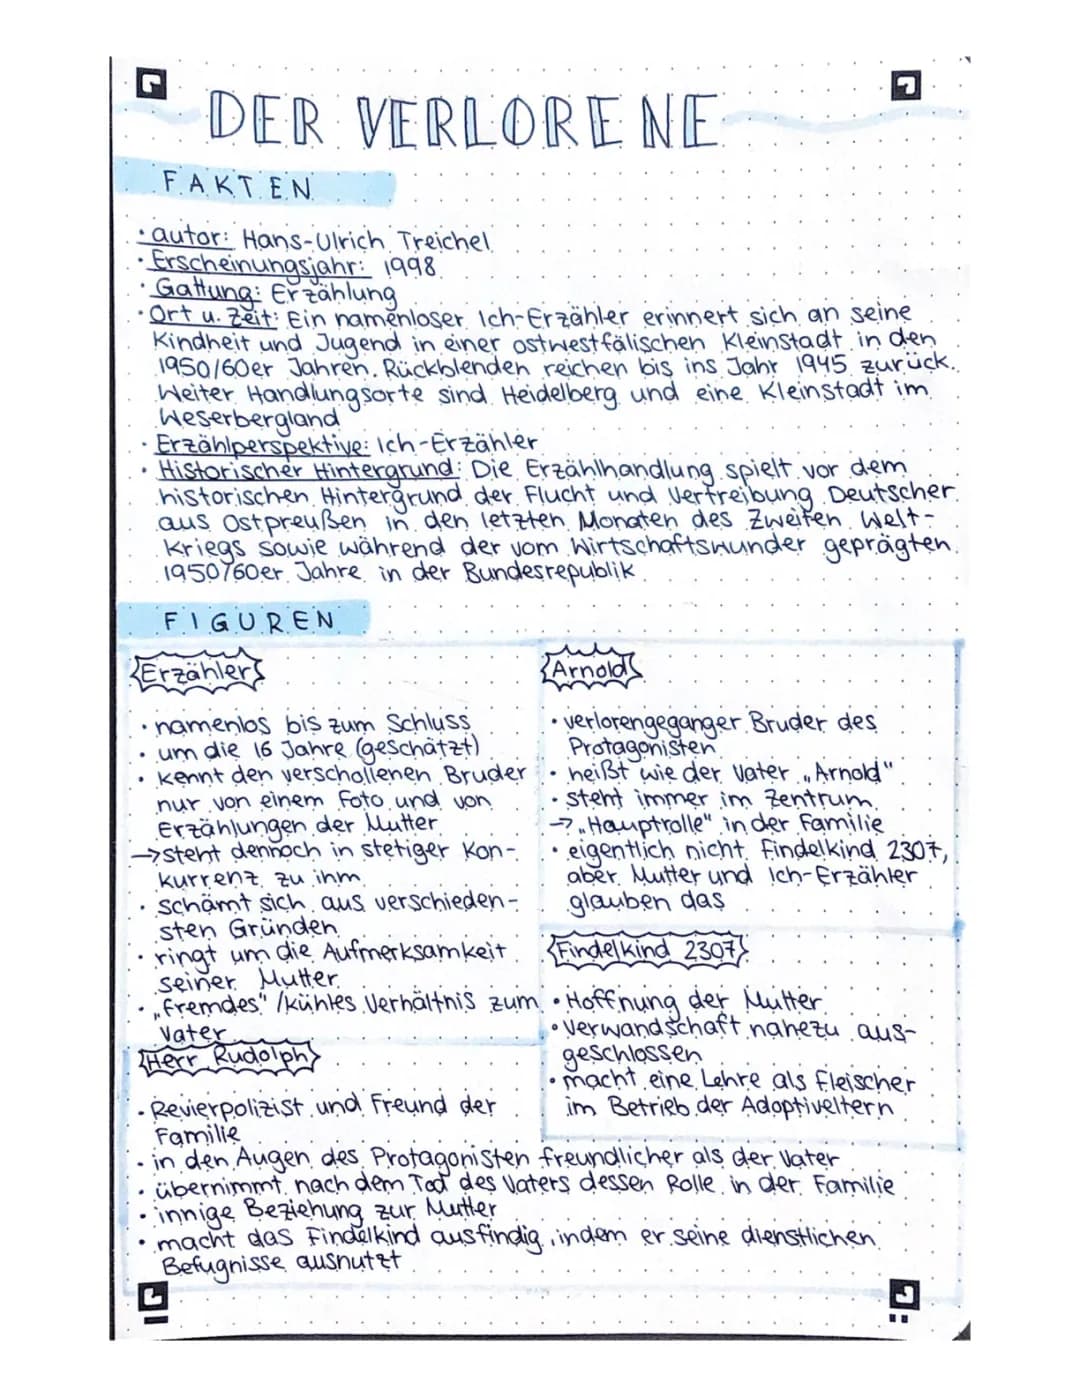 DER VERLORENE
FAKTEN
· autor: Hans-Ulrich Treichel
· Erscheinungsjahr: 1998
· Gattung: Erzählung
· Ort u. Zeit: Ein namenloser Ich-Erzähler erinnert sich an seine
Kindheit und Jugend in einer ostwestfälischen Kleinstadt in den
1950/60er Jahren. Rückblenden reichen bis ins Jahr 1945 zurück.
Weiter Handlungsorte sind Heidelberg und eine Kleinstadt im
Weserbergland
· Erzählperspektive: Ich-Erzähler
· Historischer Hintergrund: Die Erzählhandlung spielt vor dem
historischen Hintergrund der Flucht und Vertreibung Deutscher
aus Ostpreußen in den letzten Monaten des Zweiten Welt-
kriegs sowie während der vom Wirtschaftswunder geprägten
1950/60er Jahre in der Bundesrepublik
FIGUREN
Erzähler
· namenlos bis zum Schluss
· um die 16 Jahre (geschätzt)
· kennt den verschollenen Bruder
nur von einem Foto und von
Erzählungen der Mutter
→ steht dennoch in stetiger Kon-
kurrenz zu ihm
· schämt sich aus verschieden-
sten Gründen
· ringt um die Aufmerksamkeit
seiner Mutter
· „fremdes" /kühles Verhältnis zum
Vater
Arnold
· verlorengeganger Bruder des
Protagonisten
· heißt wie der Vater „Arnold"
· steht immer im Zentrum
→ „Hauptrolle" in der Familie
· eigentlich nicht Findelkind 2307,
aber Mutter und Ich-Erzähler
glauben das
Findelkind 2307
· Hoffnung der Mutter
· Verwandschaft nahezu aus-
geschlossen
· macht eine Lehre als Fleischer
im Betrieb der Adoptiveltern
Herr Rudolph
· Revierpolizist und Freund der
Familie
· in den Augen des Protagonisten freundlicher als der Vater
· übernimmt nach dem Tod des Vaters dessen Rolle in der Familie
· innige Beziehung zur Mutter
· macht das Findelkind ausfindig, indem er seine dienstlichen
Befugnisse ausnutzt